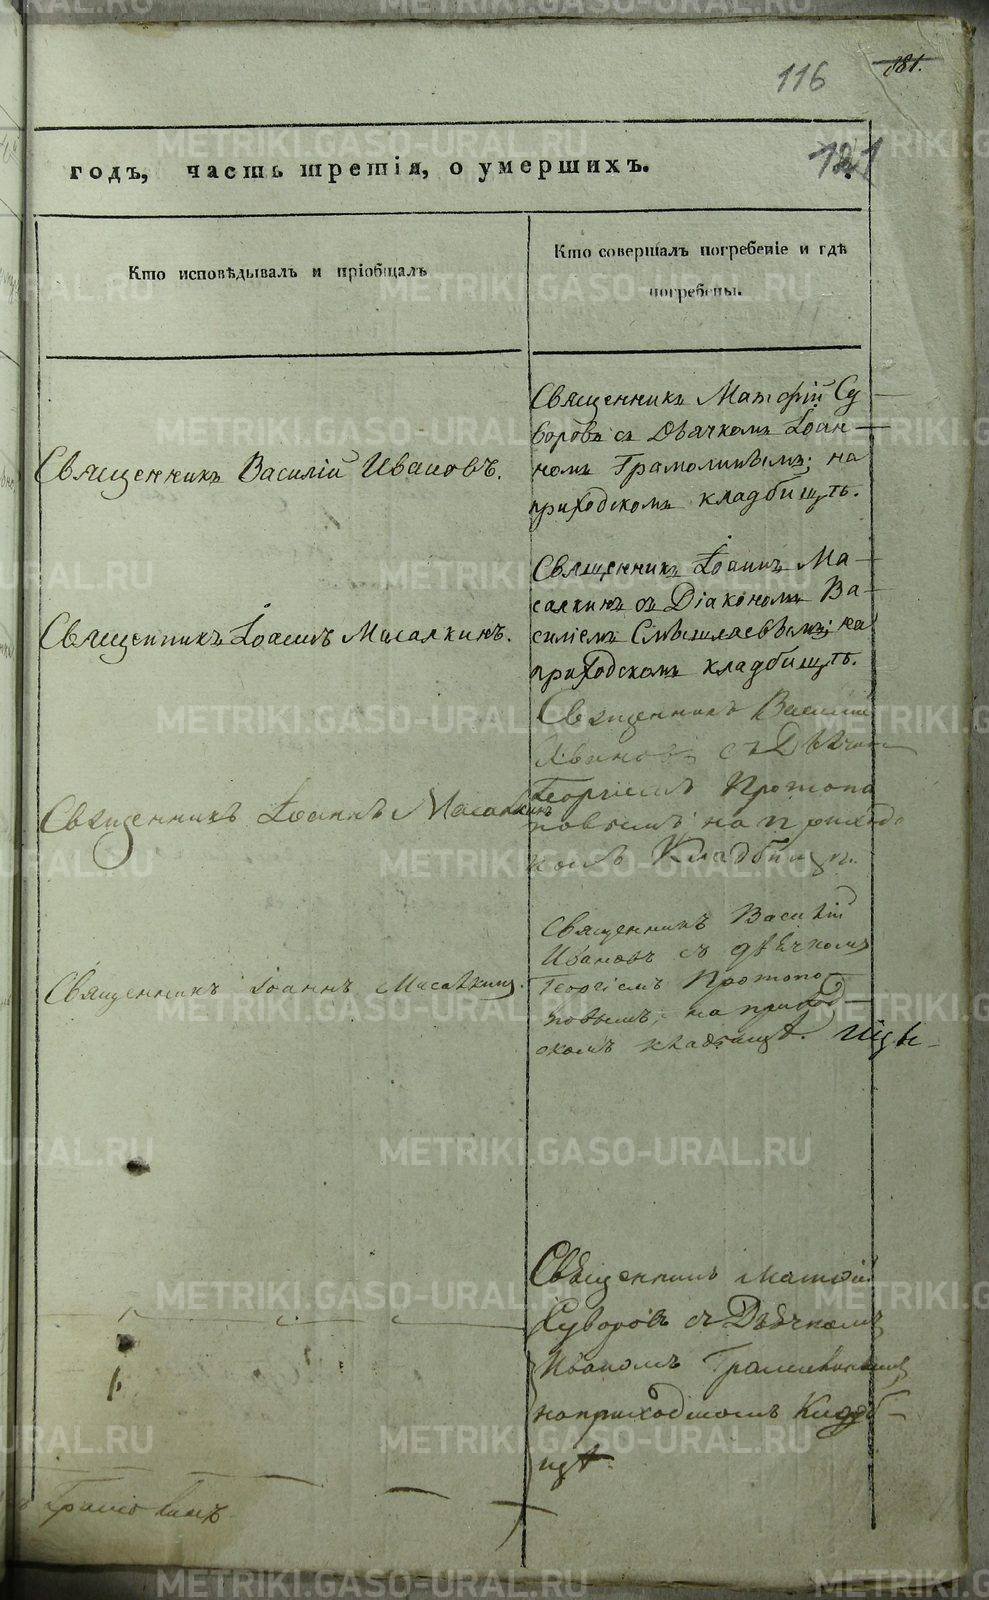 116
181.
годъ, часть третія, о умершихъ.
Кто исповѣдывалъ и пріобщалъ
Кто совершалъ погребеніе и гдѣ
погребены.
Священникъ Василій Ивановъ.
Священникъ Матфій Су
воровъ съ Дьячкомъ Іоан-
номъ Грамолинымъ; на
приходскомъ кладбищѣ.
Священникъ Іоаннъ Масалкинъ.
Священникъ Іоаннъ Ма-
салкинъ съ Діакономъ Ва-
силіемъ Смышляевымъ; на
приходскомъ кладбищѣ.
Священникъ Іоаннъ Масалкинъ
Священникъ Василій
Ивановъ съ Дьячко
Георгіемъ Протопо
повымъ; на приходс
комъ Кладбищѣ.
Священникъ Іоаннъ Масалкинъ.
Священникъ Василій
Ивановъ съ дьячкомъ
Георгіемъ Протопо
повымъ; на приход-
скомъ кладбищѣ.
Священникъ Матфій
Суворовъ съ Дьячкомъ
Иваномъ
на приходскомъ Кладб-
ищѣ.
METRIKI.GASO-URAL.RU